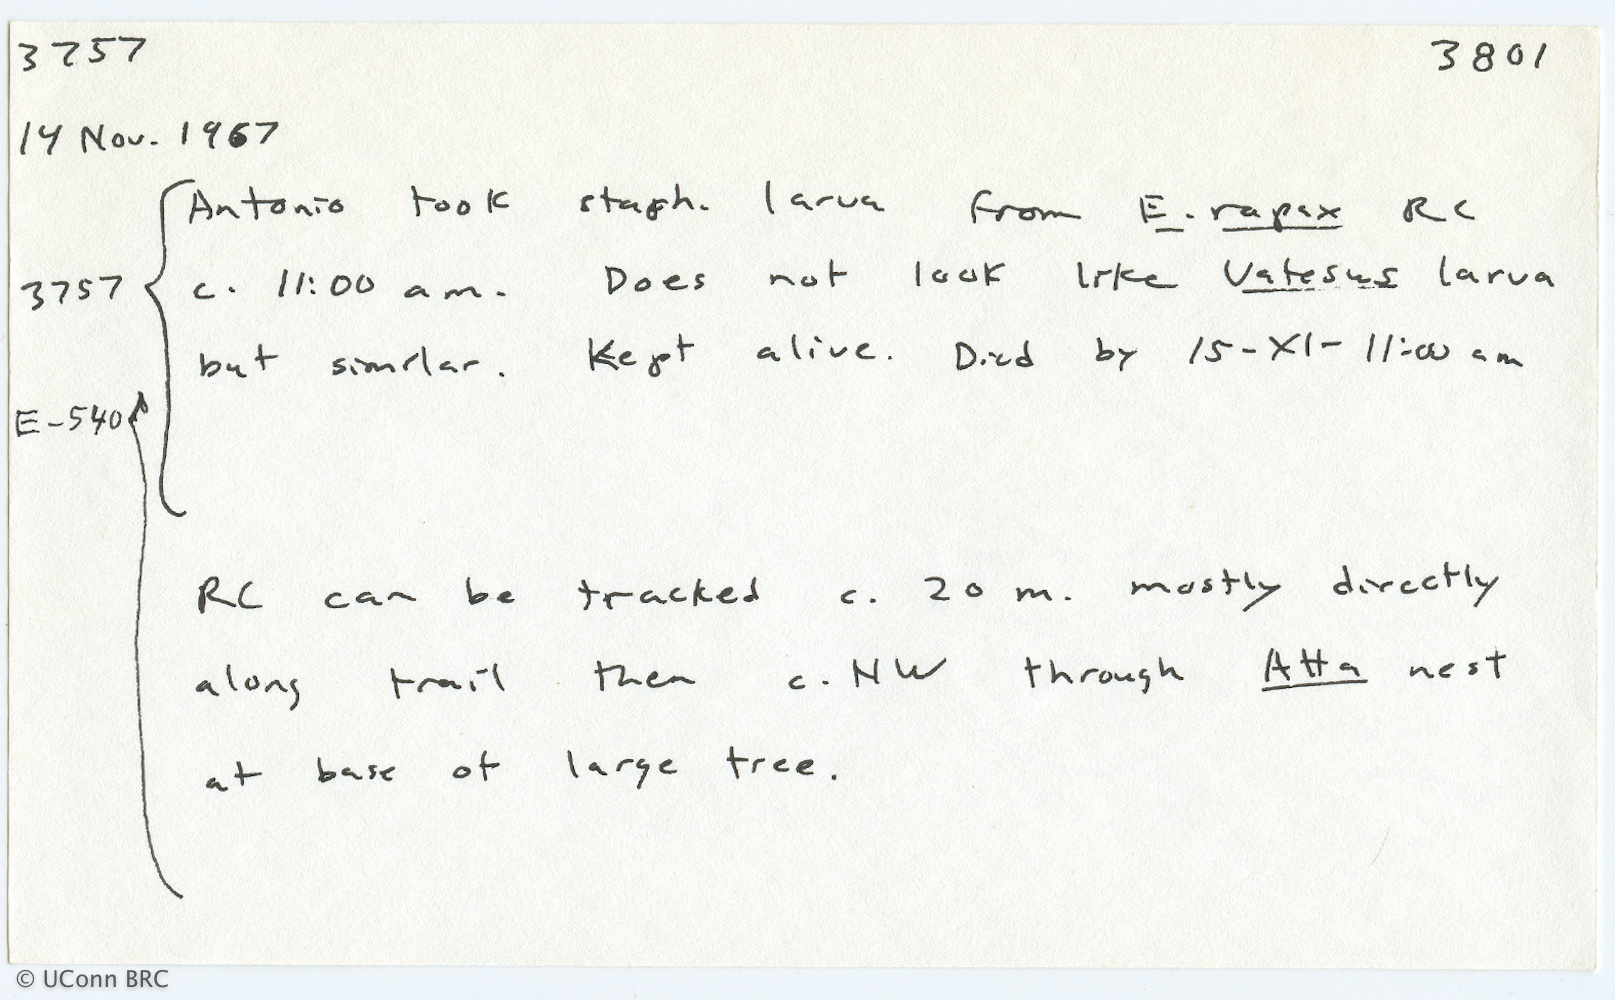 3757 3801
14 Nov. 1967
Antonio took staph. larva from E. rapax RC
3757 c. 11:00 am. Does not look like Vatesus larva
but similar. Kept alive. Died by 15-XI- 11:00 am
E-540
RC can be tracked c. 20 m. mostly directly
along trail then c. NW through Atta nest
at base of large tree.
© UConn BRC